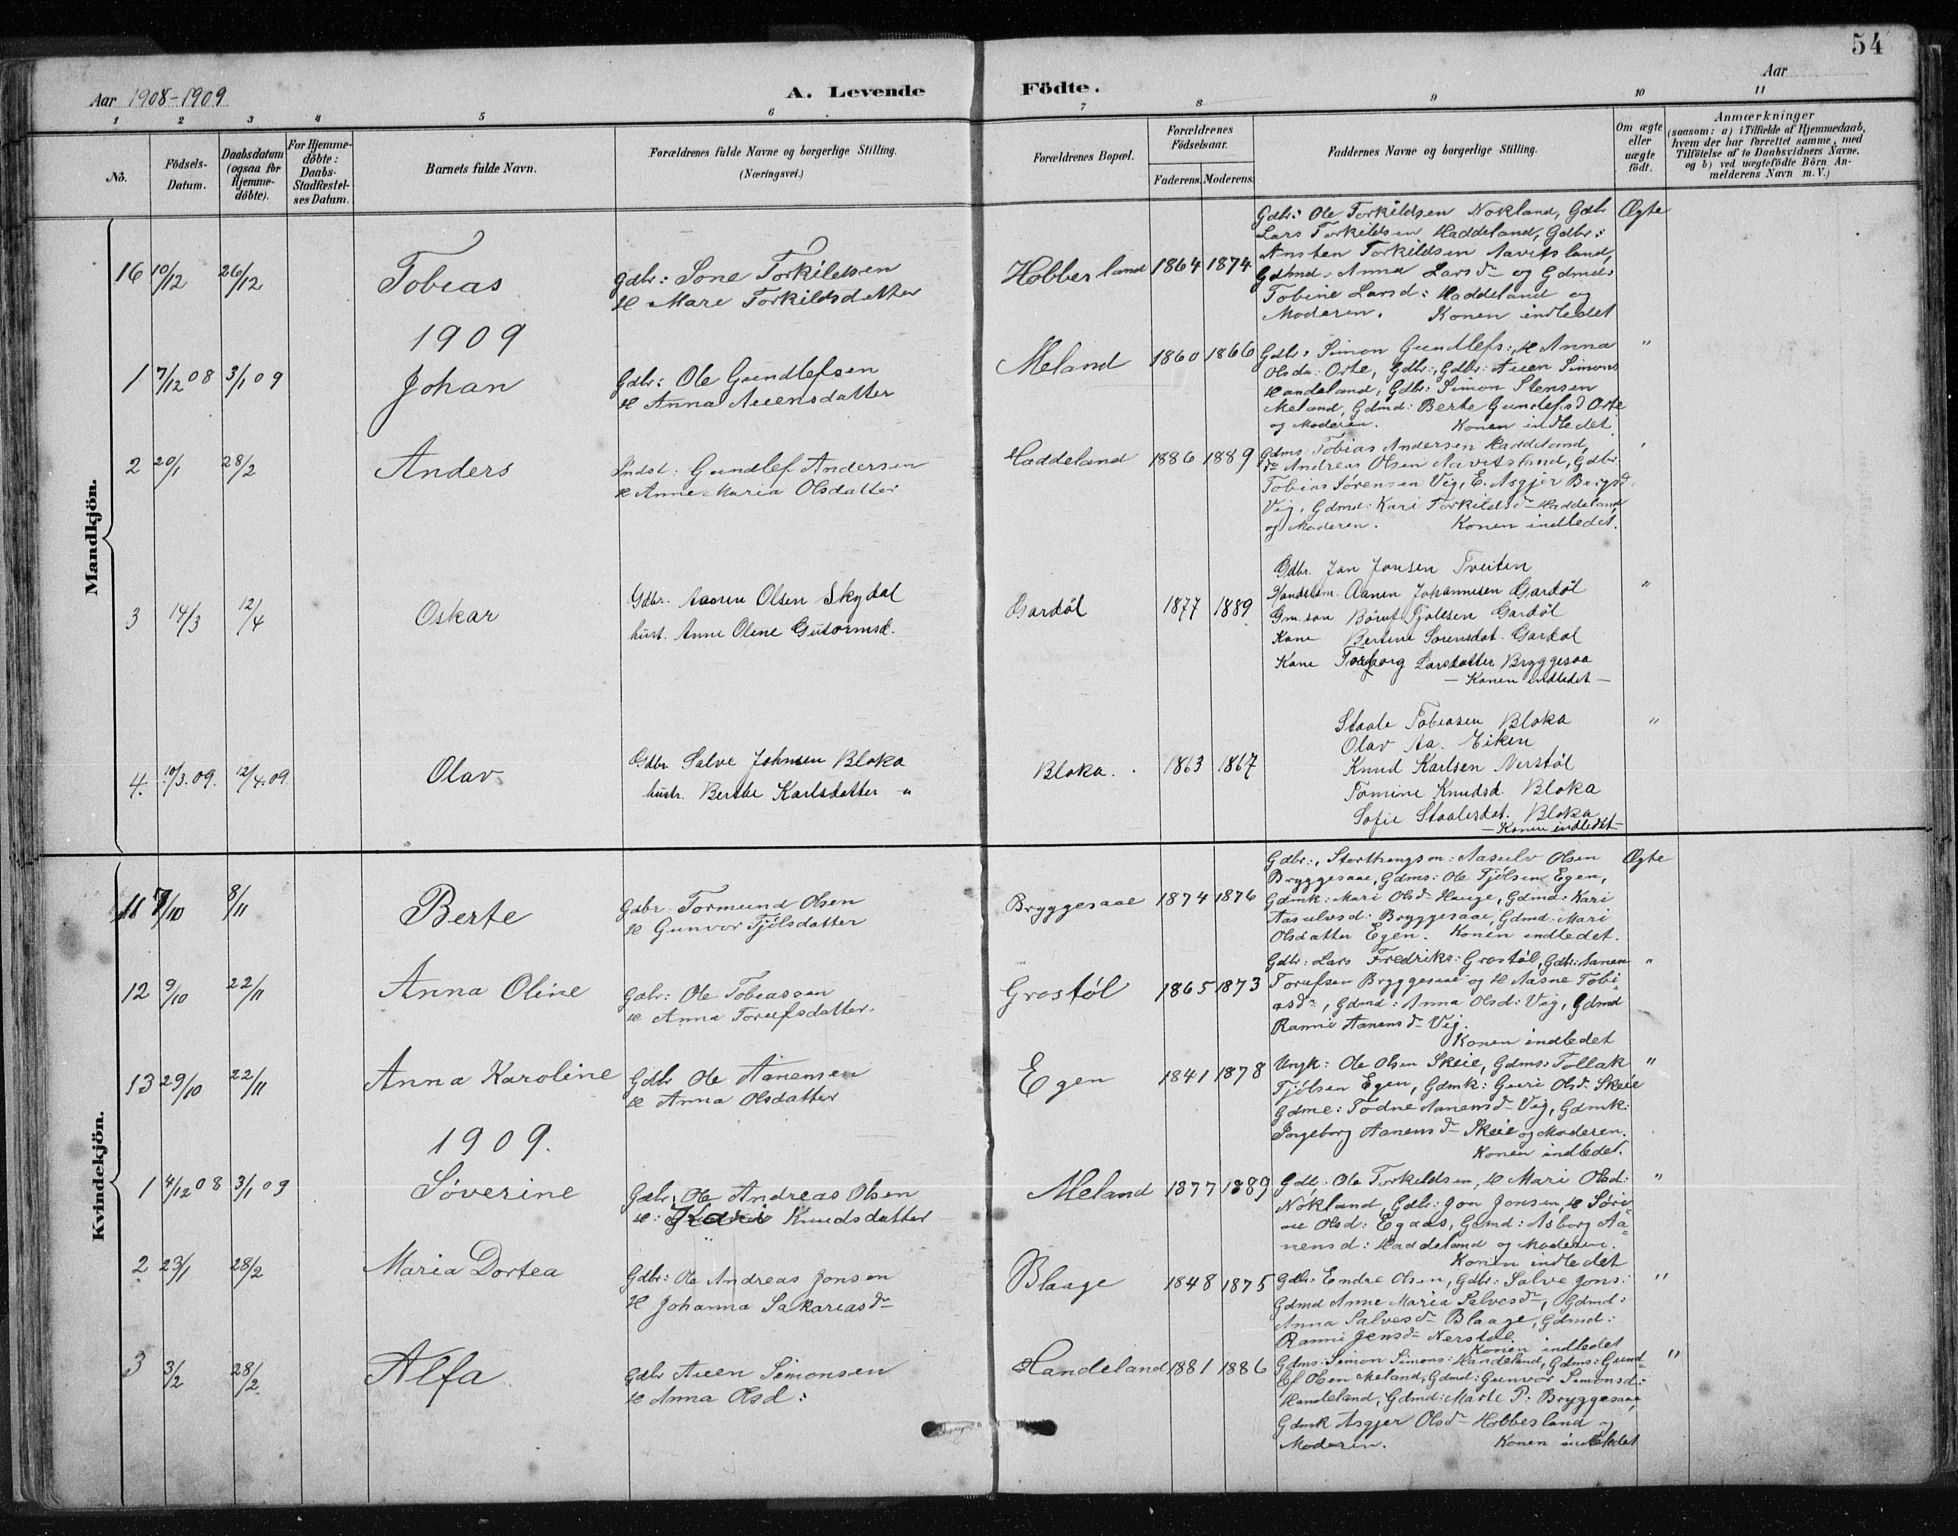 54
Aar 1908-1909
A. Levende Födte.
Aar
1 2 3 4 5 6 7 8 9 10 11
No.
Födsels-Datum.
Daabsdatum (ogsaa for Hjemme-döbte).
For Hjemme-döbte: Daabs-Stadfæstel-ses Datum.
Barnets fulde Navn.
Forældrenes fulde Navne og borgerlige Stilling.
(Næringsvei.)
Forældrenes Bopæl.
Forældrenes Födselsaar.
Faderens. Moderens.
Faddernes Navne og borgerlige Stilling.
Om ægte eller uægte födt.
Anmærkninger
(saasom: a) i Tilfælde af Hjemmedaab,
hvem der har forrettet samme, med
Tilföielse af to Daabsvidners Navne.
og b) ved uægtefödte Börn An-
melderens Navn m. V.)
Mandkjön.
16 10/12 26/12 Tobias
Gdbr: Sone Torkildsen
H Mari Torkildsdatter
Hobbesland 1864 1874
Gdbr: Ole Torkildsen Nokland, Gdbr
Lars Torkildsen Haddeland, Gdbr:
Torkildsen Aavitsland,
Gdmd: Anna Larsd og Gdmds
Tobine Larsd: Haddeland og
Moderen. Konen indledet
Ægte
1909
1 7/12 08 3/1 09 Johan
Gdbr: Ole Gundlefsen
H Anna Auensdatter
Meland 1860 1866
Gdbr: Simon Gundlefs: H Anna
Olsda: Orte, Gdbr: Gdbr: Auen Simons
Handeland, Gdbr: Simon Stensen
Meland, Gdmd: Berte Gundlefsd Orte
og Moderen. Konen indledet
"
2 20/1 28/2 Anders
Indst: Gundlef Andersen
H Anne Maria Olsdatter
Haddeland 1886 1889
Gdms: Tobias Andersen Haddeland,
Andreas Olsen Aavitsland, Gdbr:
Tobias Sørensen Vig, E. Asgjer Bergsd
Vig, Gdmd: Kari Torkildsd Haddeland
og Moderen. Konen indledet.
3 14/3 12/4 Oskar
Gdbr. Aanen Olsen Skydal
hust. Anne Oline Gutormsd.
Gardöl 1877 1889
Gdbr. Jan Jonsen Tveiten
Handelsm. Aanen Johannesen Gardöl
Gm.son Börut Fjölesen Gardöl
Kone Bertine Sorensdat. Gardöl
Kone Torborg Larsdatter Bryggesaa
— Konen indledet —
"
4. 10/3.09. 12/4.09 Olav
Gdbr. Salve Johnsen Bloka
hustr. Berthe Karlsdatter "
Bloka. 1863 1867
Staale Tobiasen Bloka
Olav Aa. Eiken
Knud Karlsen Nerstöl
Tomine Knudsd. Bloka
Sofie Staalesdat. Bloka
— Konen indledet —
"
Kvindekjön.
11 7/10 8/11 Berte
Gdbr. Tormund Olsen
H Gunvor Tjölsdatter
Bryggesaae 1874 1876
Gdbr:, Storthingsm: Aasulv Olsen
Bryggesaae, Gdms: Ole Tjölsen Egen,
Gdmk: Mari Olsd Hauge, Gdmd: Kari
Aasulvsd: Bryggesaae, Gdmd: Mari
Olsdatter Egen. Konen indledet.
Ægte
12 9/10 22/11 Anna Oline
Gdbr: Ole Tobiassen
H Anna Torufsdatter.
Grostöl 1865 1873
Gdbr: Lars Fredriks: Grostöl, Gdbr: Aanen
Torufsen Bryggesaae og H Aasne Tobi-
asd, Gdmd: Anna Olsd: Vig, Gdmd
Ranni Aanensd Vig.
Konen indledet
"
13 29/10 22/11 Anna Karoline
Gdbr Ole Aanensen
H Anna Olsdatter
Egen 1841 1878
Ungk: Ole Olsen Skeie, Gdms: Tollak
Tjölsen Egen, Gdmk: Guri Olsd. Skeie
Gdme: Todne Aanensd Vig, Gdmk:
Ingeborg Aanensd Skeie og Moderen.
Konen indledet.
"
1909.
1 4/12 08 3/1 09 Söverine
Gdbr: Ole Andreas Olsen
H: Kari Knudsdatter
Meland 1877 1889
Gdb: Ole Torkildsen, H Mari Olsd:
Nökland, Gdbr: Jon Jonsen, H Söri-
ne Olsd: Egaas, Gdmd: Asborg Aa-
nensd: Haddeland og Moderen.
Konen indledet
"
2 23/1 28/2 Maria Dortea
Gdbr: Ole Andreas Jonsen
H Johanna Sakariasd
Blaage 1848 1875
Gdbr: Endre Olsen, Gdbr: Salve Jons:
Gdmd Anne Maria Salvesd, Gdmd:
Anna Salvesd Blaage, Gdmd:
Ranni Jensd Nerstöl
Konen indledet
"
3 3/2 28/2 Alfa
Gdbr Auen Simonsen
H Anna Olsd:
Handeland 1881 1886
Gdms: Simon Simons: Handeland, Gdms: Gund-
lef Olsen Meland, Gdmd: Gunvor Simonsd:
Handeland, Gdmd: Marte P: Bryggesaae,
Gdmk Asgjer Olsd Hobbesland og
Moderen. Konen indledet
"